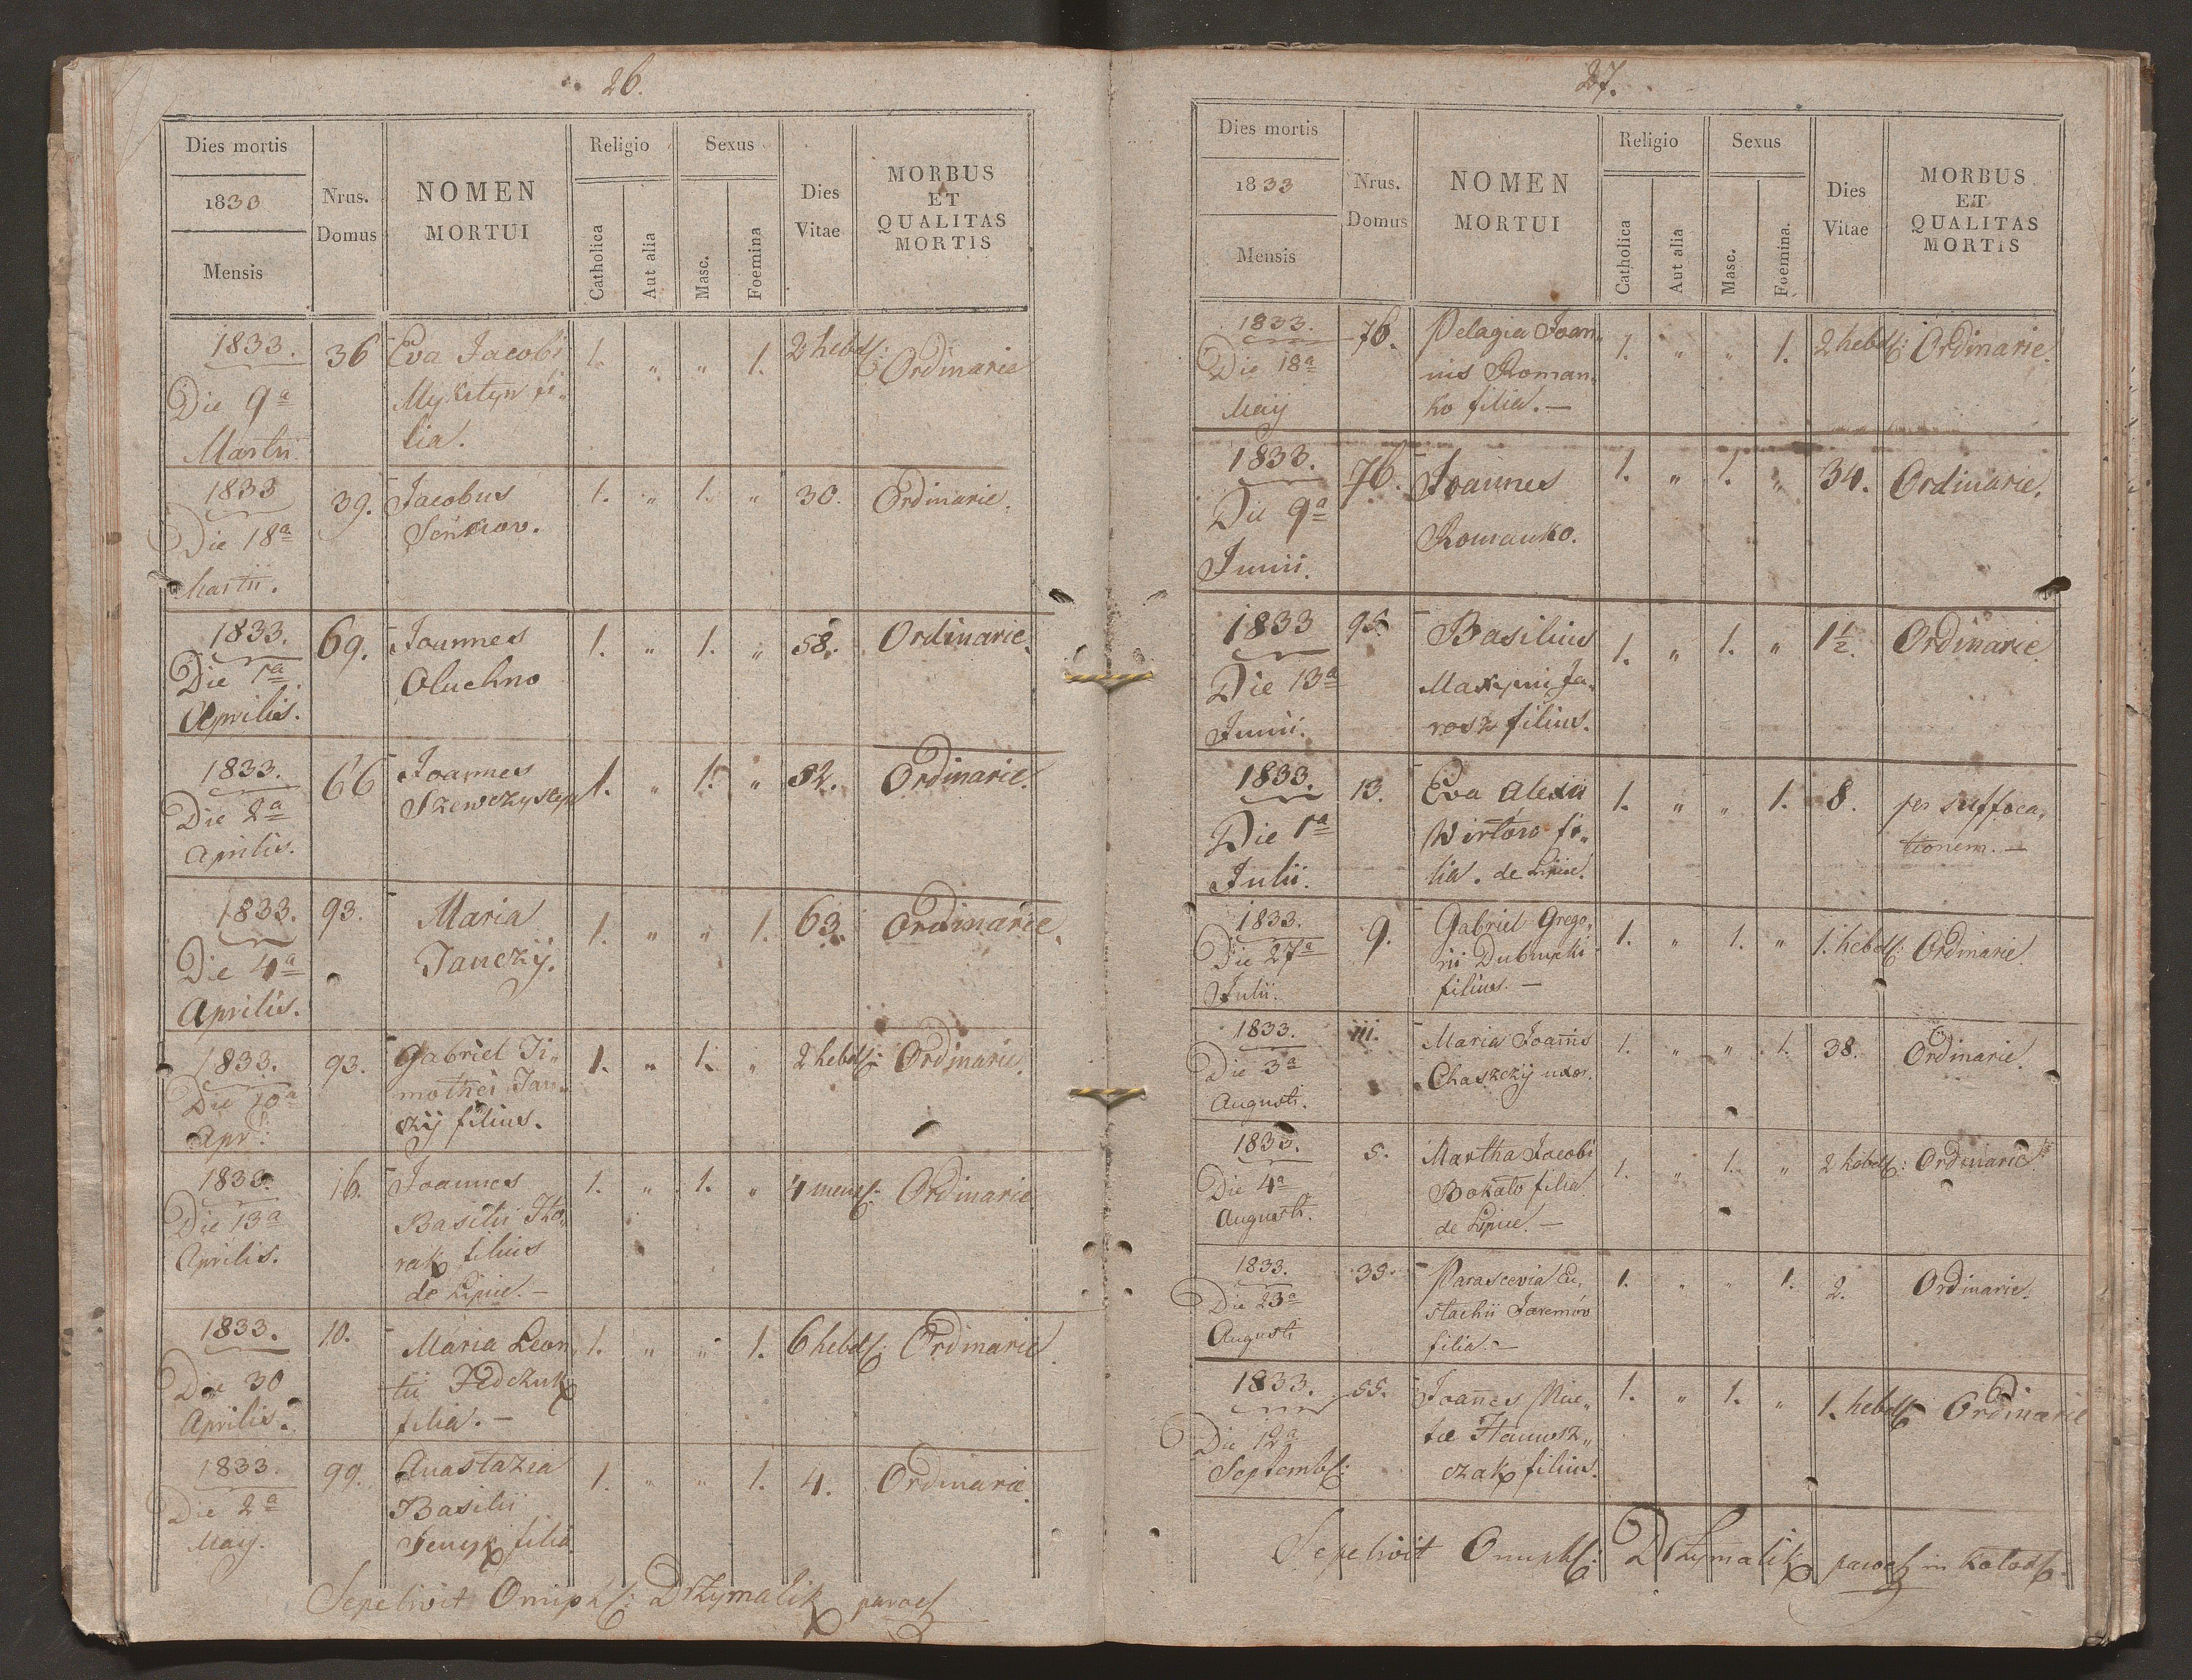 26.
Dies mortis
1833
Mensis
Nrus. Domus
NOMEN MORTUI
Religio
Catholica
Aut alia
Sexus
Masc.
Foemina
Dies Vitae
MORBUS ET QUALITAS MORTIS
1833. 36 Eva Jacobi 1. " " 1. 2 hebd: Ordinarie
Die 9a Mykityn fi„
Martii. lia.
1833 39. Jacobus 1. " 1. " 30. Ordinarie.
Die 18a
Martii.
1833. 69. Joannes 1. " 1. " 58. Ordinarie.
Die 1a Oluchno
Aprilis.
1833. 66 Joannes 1. " 1. " 82. Ordinarie.
Die 2a
Aprilis.
1833. 93. Maria 1. " " 1. 63. Ordinarie.
Die 4a Janczÿ.
Aprilis.
1833. 93. Gabriel Ti„ 1. " 1. " 2 hebd: Ordinarie.
Die 10a mothei Jan„
Apr: czÿ filius.
1833. 16. Joannes 1. " 1. " 4 mens: Ordinarie
Die 13a Basilii
Aprilis. rak filius
de Lipice. –
1833. 10. Maria Leon„ 1. " " 1. 6 hebd: Ordinarie.
Die 30 tii Fedczuk
Aprilis. filia. –
1833. 99. Anastazia 1. " " 1. 4. Ordinarie.
Die 2a Basilii
Maÿ. filia
Sepelivit Oniph: Drzymalik paroch
27.
Dies mortis
1833
Mensis
Nrus. Domus
NOMEN MORTUI
Religio
Catholica
Aut alia
Sexus
Masc.
Foemina.
Dies Vitae
MORBUS ET QUALITAS MORTIS
1833. 76. Pelagia Joan„ 1. " " 1. 2 hebd: Ordinarie.
Die 18a nis Roman„
Maÿ ko filia. –
1833. 76. Joannes 1. " 1. " 34. Ordinarie.
Die 9a Romanko.
Junii.
1833 95. Basilius 1. " 1. " 1 1/2. Ordinarie
Die 13a Maxymi Ja„
Junii. rosz filius.
1833. 13. Eva Alexii 1. " " 1. 8. per suffoca„
Die 1a fi„ tionem. –
Julii. lia. de Lipice.
1833. 9. Gabriel Grego„ 1. " 1. " 1. hebd: Ordinarie.
Die 27a rii
Julii. filius. –
1833. 111. Maria Joanis 1. " " 1. 38. Ordinarie.
Die 3a Chaszczÿ uxor.
Augusti.
1833. 5. Martha Jacobi 1. " 1. " 2 hebd: Ordinarie.
Die 4a Bokało filia
Augusti. de Lipice. –
1833. 39. Parascevia Eu„ 1. " " 1. 2. Ordinarie.
Die 23a stachii Jaremów
Augusti filia. –
1833. 55. Joanes 1. " 1. " 1. hebd: Ordinarie
Die 12a
Septemb: czak filius.
Sepelivit Oniph: Drzymalik paroch in